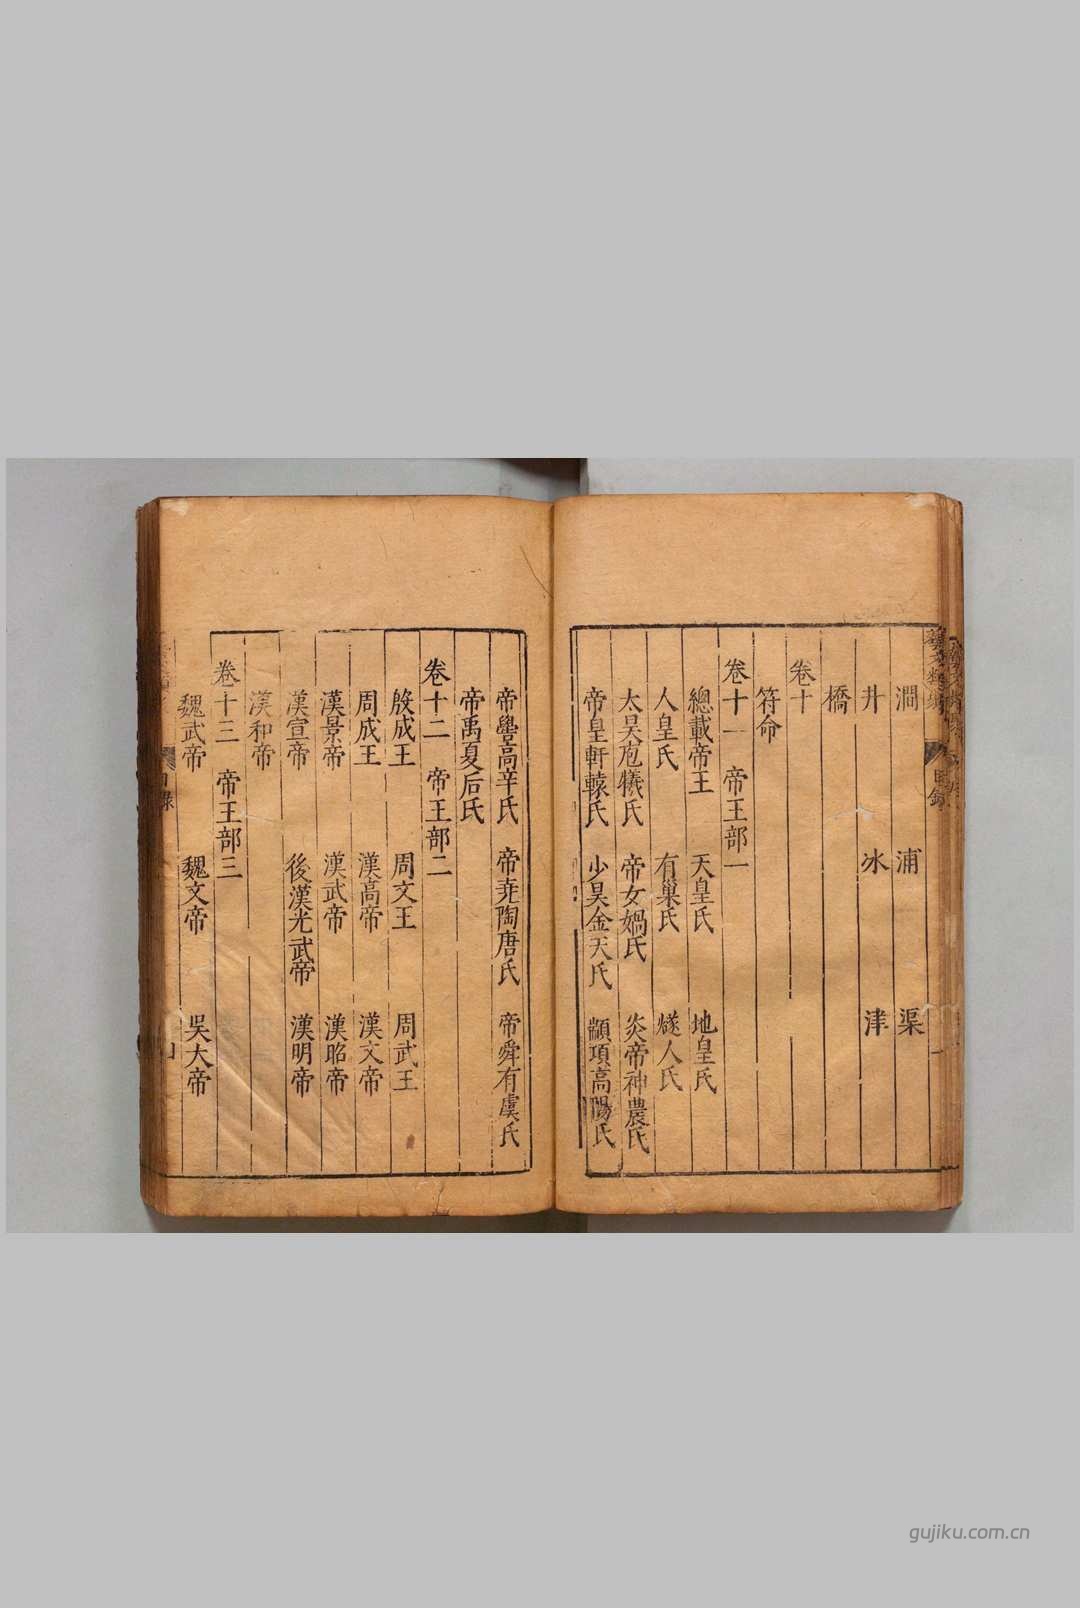 澗　浦　渠
井　冰　津
橋
卷十
符命
卷十一　帝王部一
總載帝王　天皇氏　地皇氏
人皇氏　有巢氏　燧人氏
太昊庖犧氏　帝女媧氏　炎帝神農氏
帝皇軒轅氏　少昊金天氏　顓頊高陽氏
帝嚳高辛氏　帝堯陶唐氏　帝舜有虞氏
帝禹夏后氏
卷十二　帝王部二
殷成王　周文王　周武王
周成王　漢高帝　漢文帝
漢景帝　漢武帝　漢昭帝
漢宣帝　後漢光武帝　漢明帝
漢和帝
卷十三　帝王部三
魏武帝　魏文帝　吳大帝
藝文類聚　目錄
目錄
gujiku.com.cn